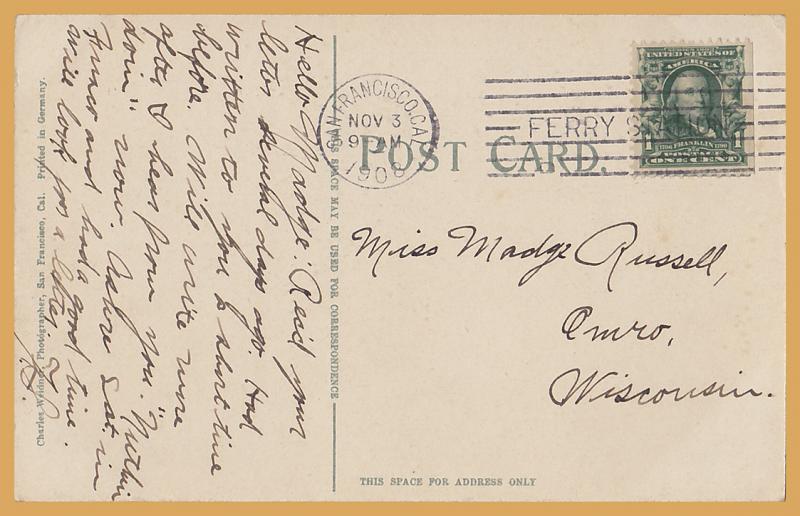 Hello Madge: Rec'd your
letter several days ago. Had
written to you a short time
before. Will write more
after I hear from you. "Nuthin
doin" now. Was in
and had a good time.
Will look for a letter.
Charles Weidner, Photographer, San Francisco, Cal. Printed in Germany.
THIS SPACE MAY BE USED FOR CORRESPONDENCE
SAN FRANCISCO, CAL.
NOV 3
9 AM
1908
FERRY STATION
POST CARD.
SERIES 1902
UNITED STATES OF
AMERICA
1 1706 FRANKLIN 1790 1
POSTAGE
ONE CENT
Miss Madge Russell,
Omro,
Wisconsin.
THIS SPACE FOR ADDRESS ONLY